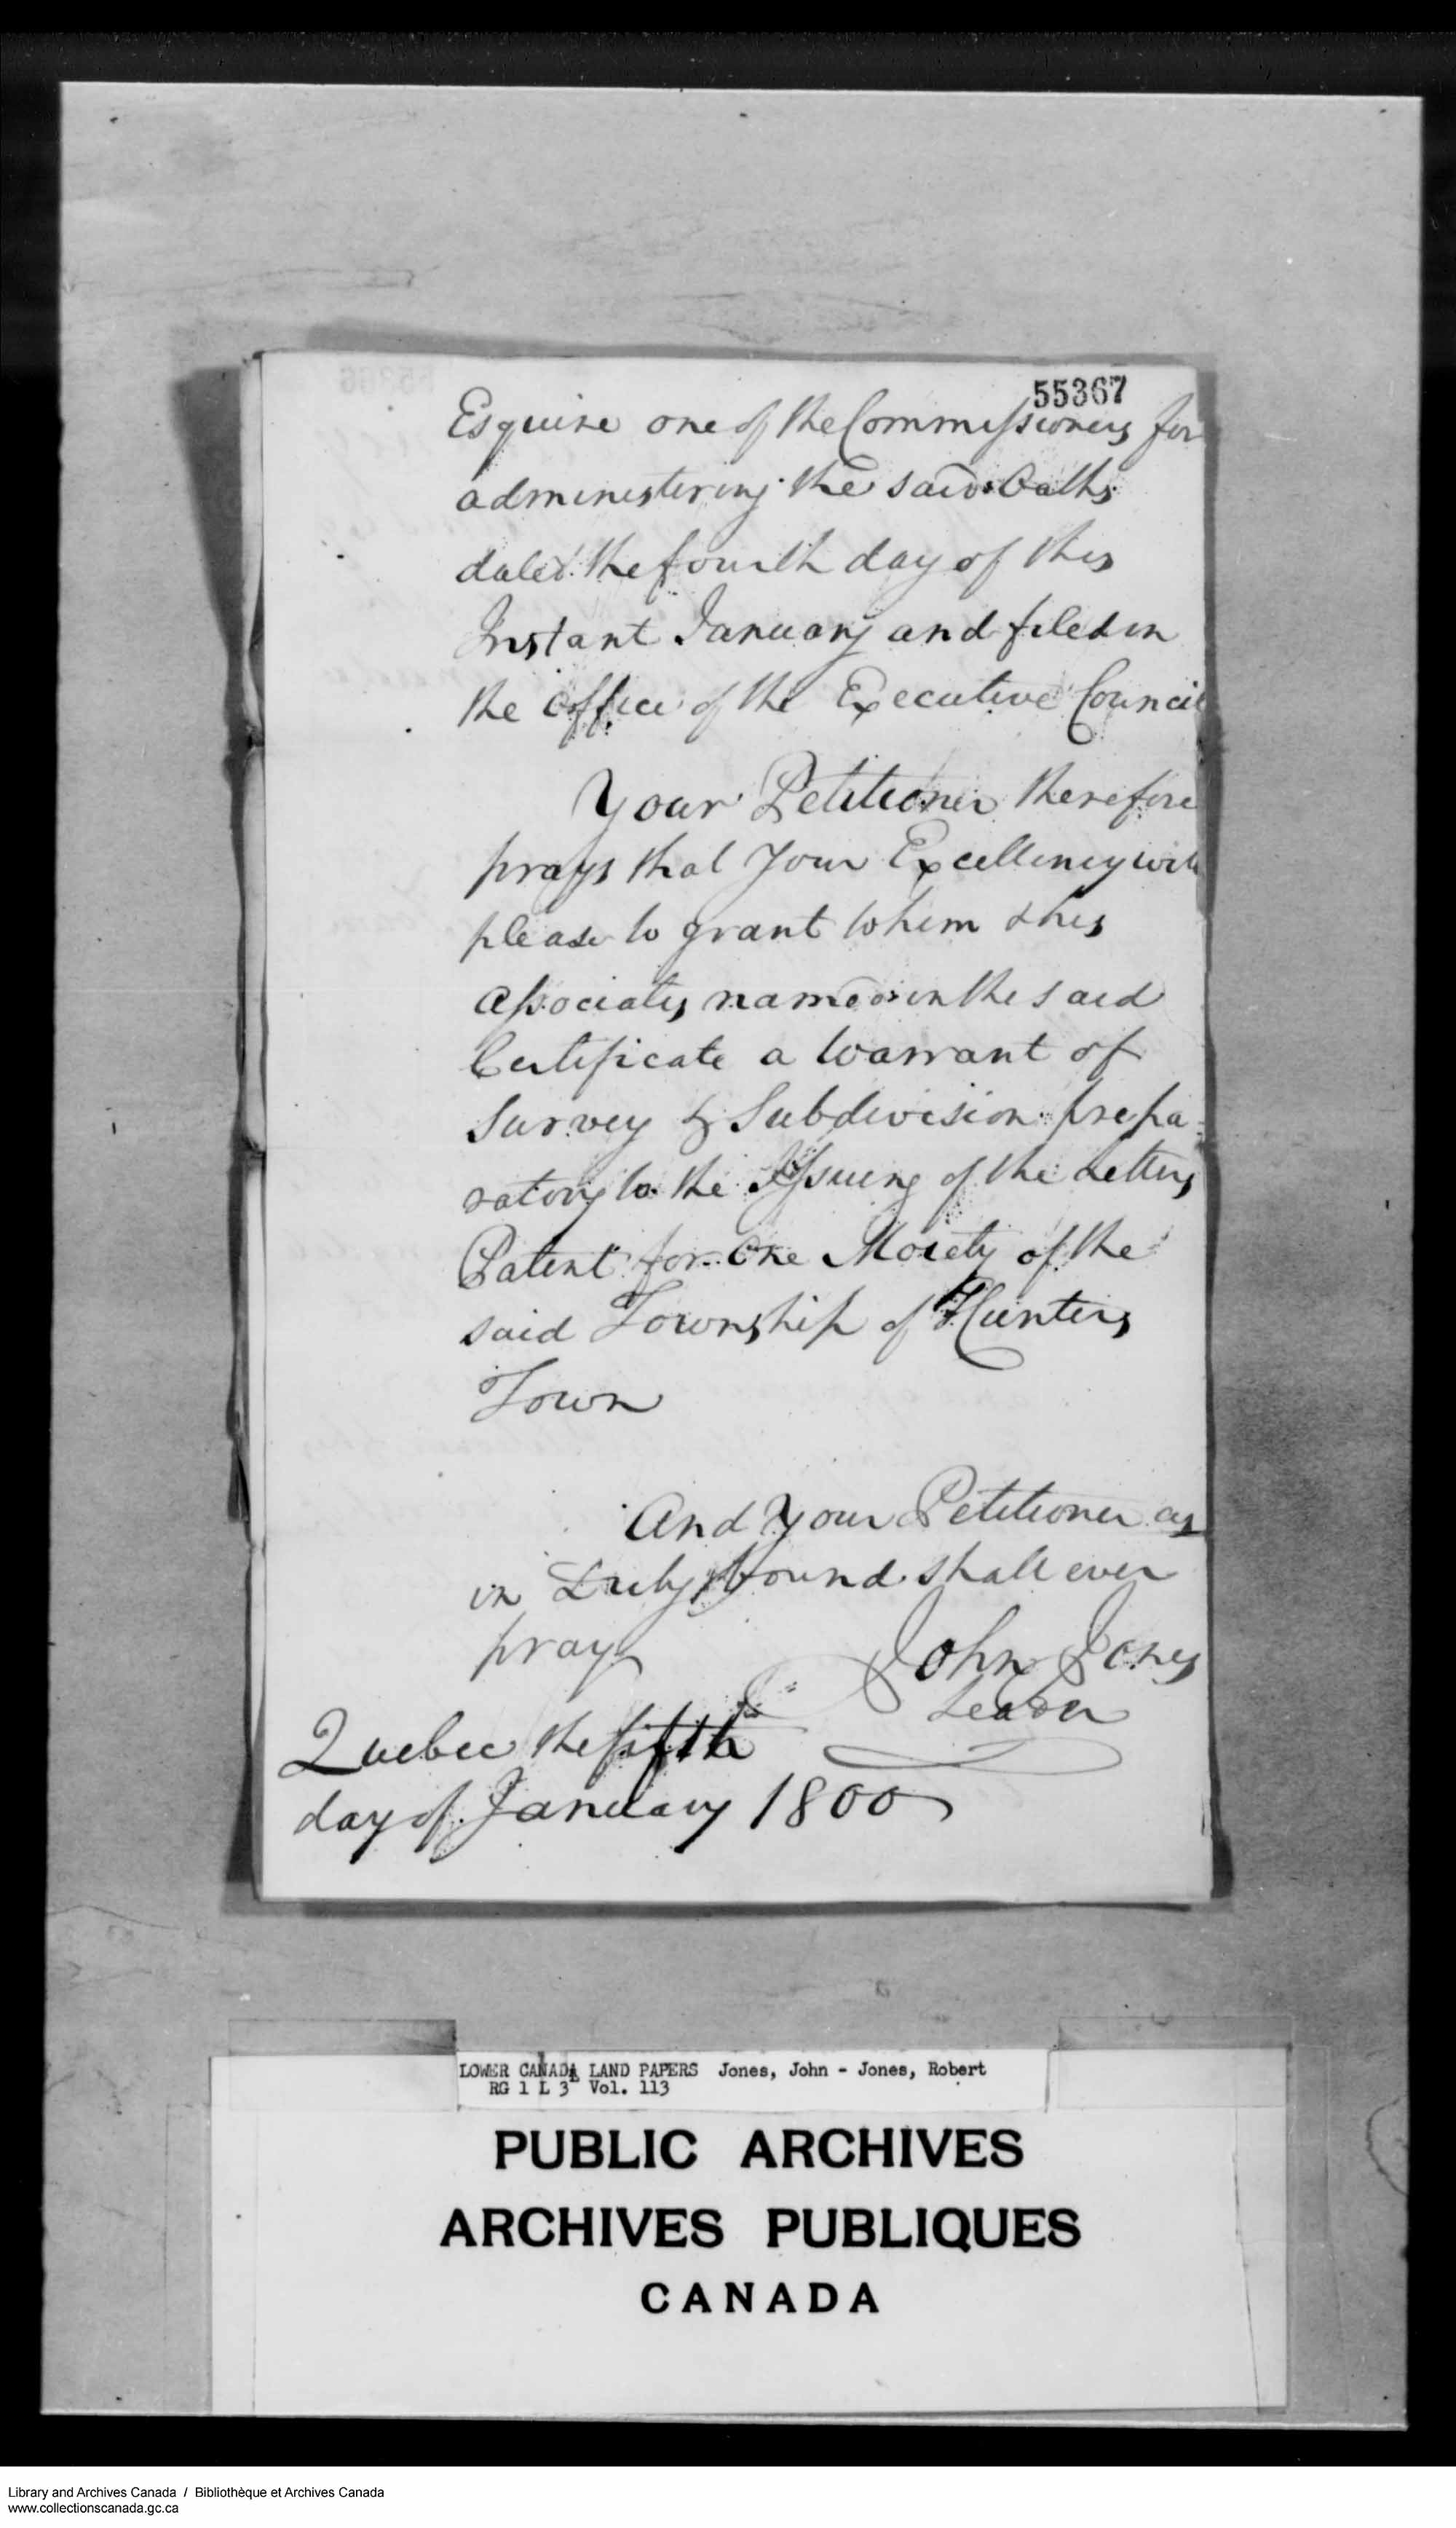 55367
Esquire one of the Commissioners for
administering the said Oaths
dated the fourth day of this
Instant January and filed in
the office of the Executive Council
Your Petitioner therefore
prays that Your Excellency will
please to grant to him & his
associates named in the said
Certificate a Warrant of
Survey & Subdivision prepa-
ratory to the Issuing of the Letters
Patent for One Moiety of the
said Township of Hunters
Town
And Your Petitioner as
in Duty bound shall ever
pray
John Jones
Leader
Quebec the fifth
day of January 1800
LOWER CANADA LAND PAPERS Jones, John - Jones, Robert
RG 1 L 3L Vol. 113
PUBLIC ARCHIVES
ARCHIVES PUBLIQUES
CANADA
Library and Archives Canada / Bibliothèque et Archives Canada
www.collectionscanada.gc.ca